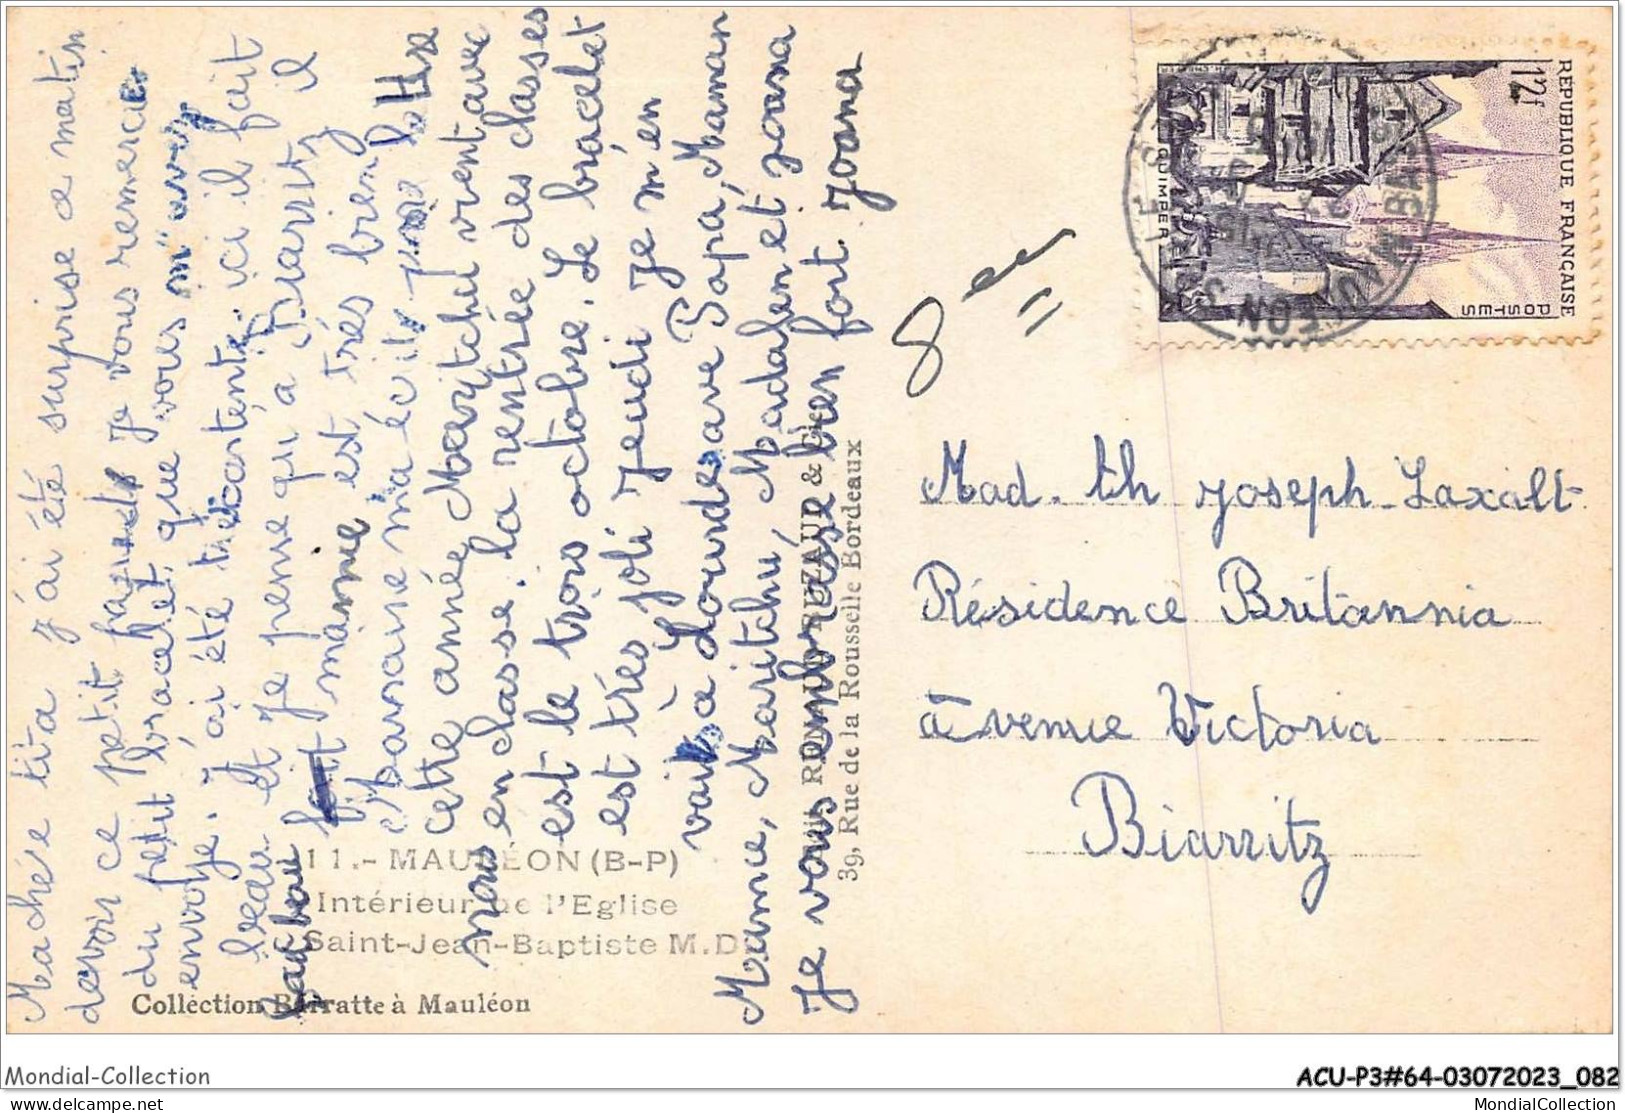 Ma chére tita j'ai été surprise ce matin
devoir ce petit paquet Je vous remercie
du petit bracelet, que vous m'avez
envoije. J'ai été très contente. ici il fait
beau et Je pense qu'a Biarritz il
fait
mamie est trés bien
Marraine m'a écrit une lettre
cette année Maritchel vient avec
nous en classe. la rentrée des classes
est le trois octobre. Le bracelet
est trés joli Jeudi Je m'en
vait à Lourdes ave Papa, Maman
Mamie, Maritchu, Madalen et Joana
Je vous embrasse bien fort Joana
11.- MAULÉON (B-P)
Intérieur de l'Eglise
Saint-Jean-Baptiste M.D.
Collection Barratte à Mauléon
RENAUD & Cie
39, Rue de la Rousselle Bordeaux
RÉPUBLIQUE FRANÇAISE
12f
POSTES
QUIMPER
MAULEON
Mad. th Joseph Laxalt
Résidence Britannia
Avenue Victoria
Biarritz
Mondial-Collection
ACU-P3#64-03072023_082
www.delcampe.net
MondialCollection